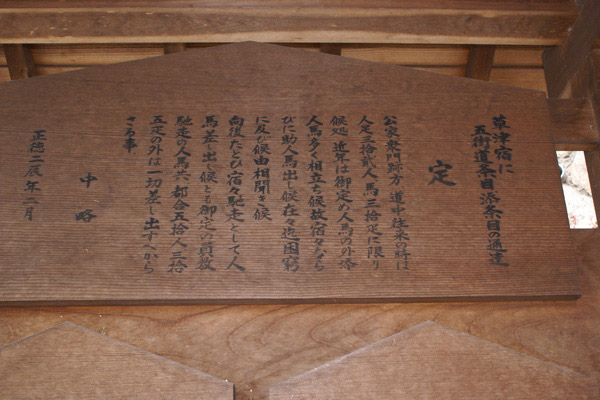 草津宿に
五街道条目添条目の通達
定
公家衆門跡方 道中往来の時は
人足三拾貳人 馬三拾疋に限り
候処 近年は御定め人馬の外添
人馬多く相立ち候故宿々なら
びに助人馬出し候在々迄困窮
に及び候由相聞き候
向後たとひ宿々馳走として人
馬差し出し候とも御定めの員数
馳走の人馬共 都合五拾人三拾
五疋の外は一切差し出すべから
さる事
中略
正徳二辰年二月